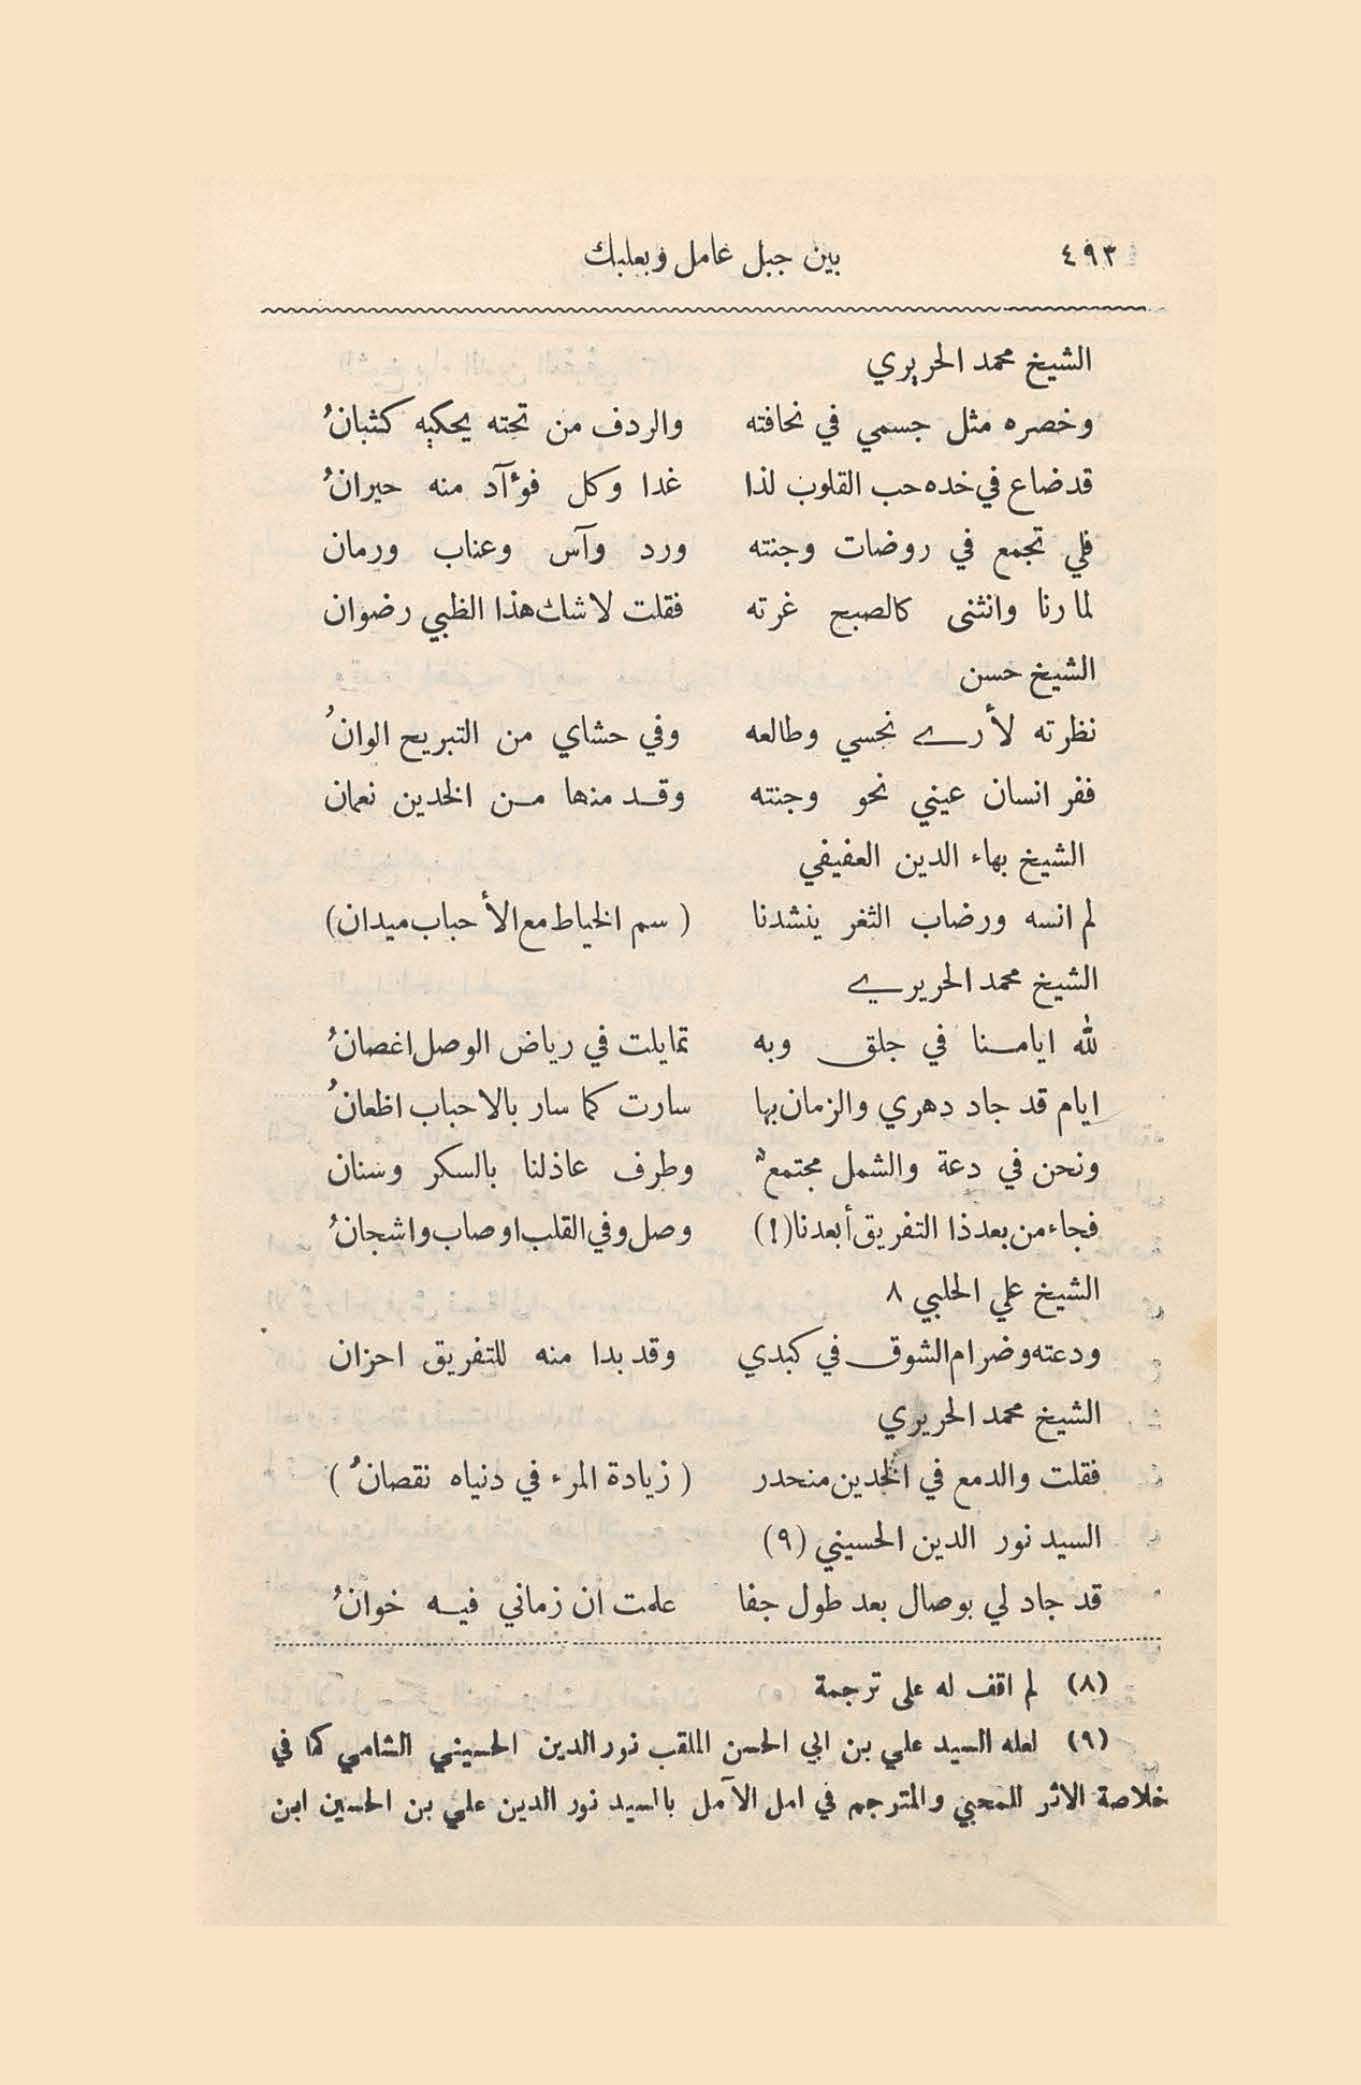 ٤٩٣ بين جبل عامل وبعلبك
الشيخ محمد الحريري
وخصره مثل جسمي في نحافته والردف من تحته يحكيه كثبانُ
قد ضاع في خده حب القلوب لذا غدا وكل فوءآد منه حيرانُ
فلي تجمع في روضات وجنته ورد وآس وعناب ورمان
لما رنا وانثنى كالصبح غرته فقلت لا شك هذا الظبي رضوان
الشيخ حسن
نظرته لأرے نجسي وطالعه وفي حشاي من التبريح الوانُ
ففر انسان عيني نحو وجنته وقد منها من الخدين نعمان
الشيخ بهاء الدين العفيفي
لم انسه ورضاب الثغر ينشدنا ( سم الخياط مع الأحباب ميدان)
الشيخ محمد الحريرے
لله ايامنا في جلق وبه تمايلت في رياض الوصل اغصانُ
ايام قد جاد دهري والزمان بها سارت كما سار بالاحباب اظعانُ
ونحن في دعة والشمل مجتمعٌ وطرف عاذلنا بالسكر وسنان
فجاء من بعد ذا التفريق أبعدنا(!) وصل وفي القلب اوصاب واشجانُ
الشيخ علي الحلبي ٨
ودعته وضرام الشوق في كبدي وقد بدا منه للتفريق احزان
الشيخ محمد الحريري
فقلت والدمع في الخدين منحدر ( زيادة المرء في دنياه نقصانُ )
السيد نور الدين الحسيني (٩)
قد جاد لي بوصال بعد طول جفا علمت ان زماني فيه خوانُ
(٨) لم اقف له على ترجمة
(٩) لعله السيد علي بن ابي الحسن الملقب نور الدين الحسيني الشامي كما في
خلاصة الاثر للمحبي والمترجم في امل الآمل بالسيد نور الدين علي بن الحسين ابن